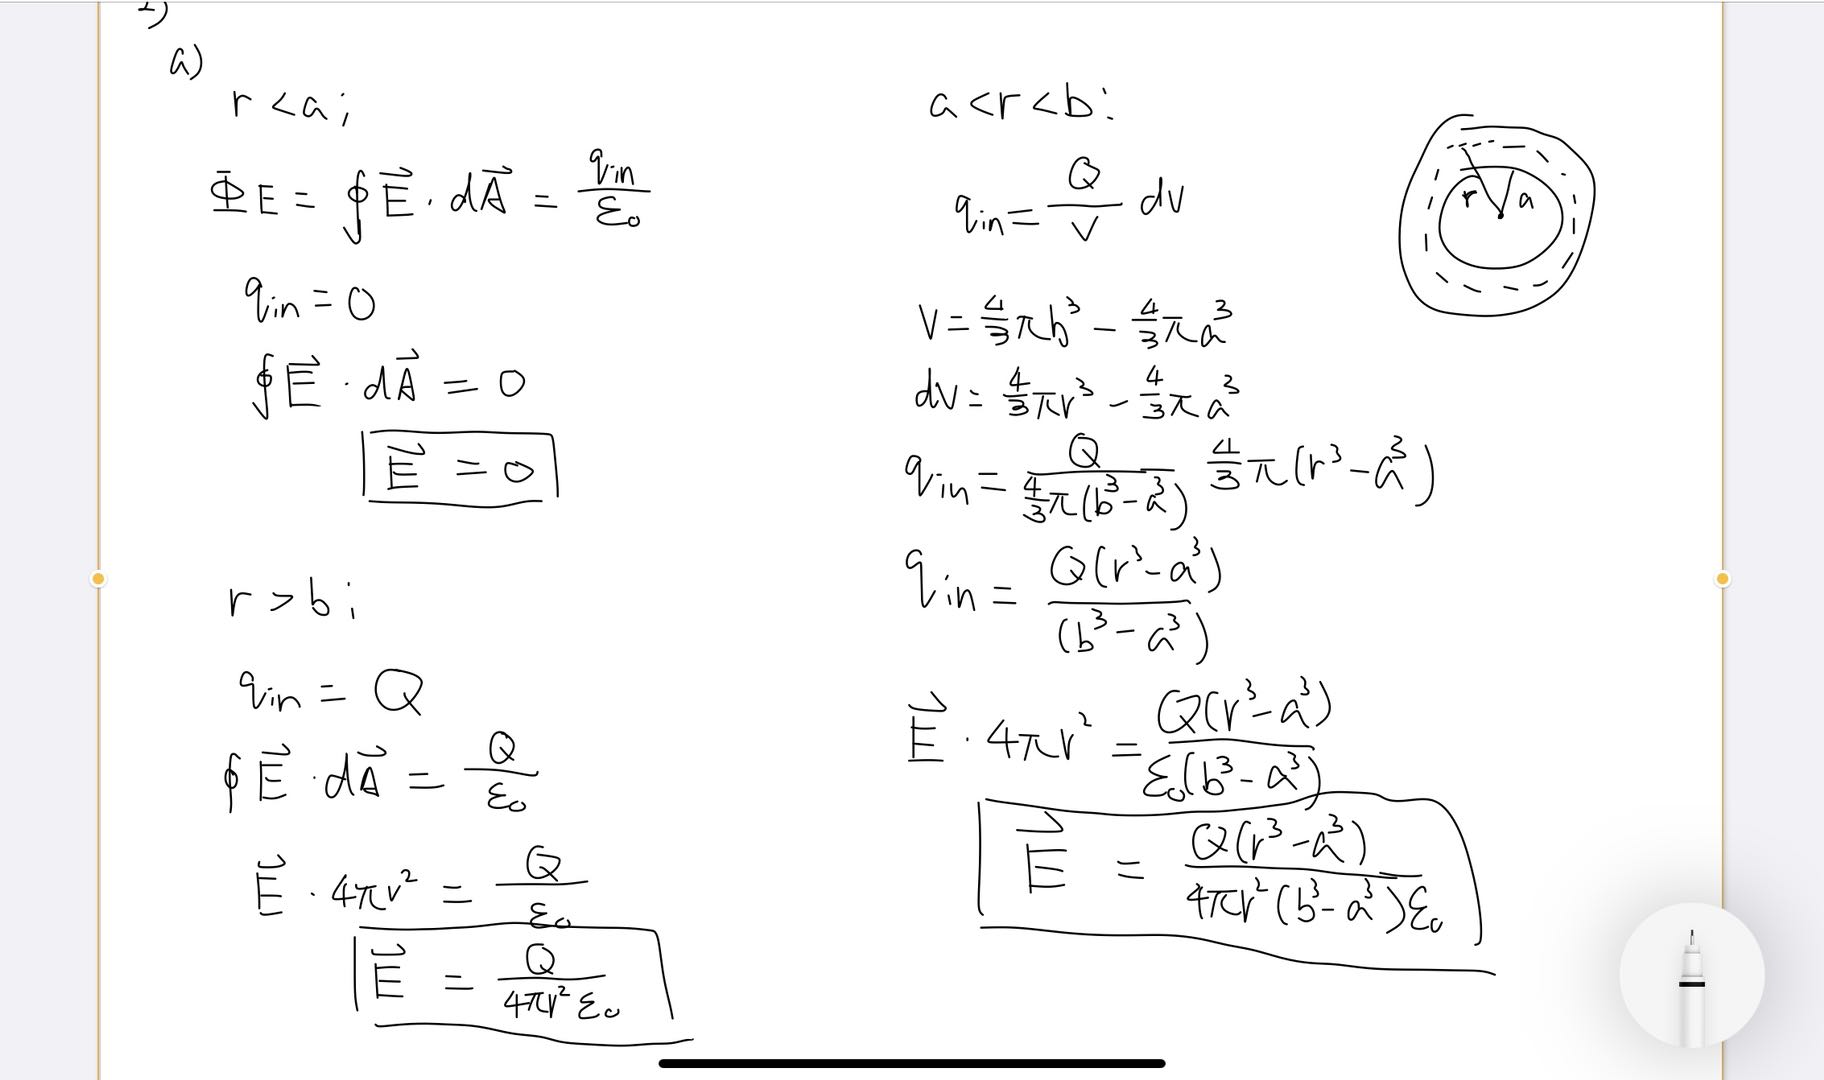 a)
r < a ;
Φ E = ∮ E⃗ · dA⃗ = qin / ε₀
qin = 0
∮ E⃗ · dA⃗ = 0
E⃗ = 0
r > b ;
qin = Q
∮ E⃗ · dA⃗ = Q / ε₀
E⃗ · 4πr² = Q / ε₀
E⃗ = Q / 4πr² ε₀
a < r < b :
qin = Q / V dv
V = 4/3 πb³ − 4/3 πa³
dV = 4/3 πr³ − 4/3 πa³
qin = Q / 4/3 π(b³ − a³) 4/3 π(r³ − a³)
qin = Q(r³ − a³) / (b³ − a³)
E⃗ · 4πr² = Q(r³ − a³) / ε₀(b³ − a³)
E⃗ = Q(r³ − a³) / 4πr² (b³ − a³)ε₀
r a